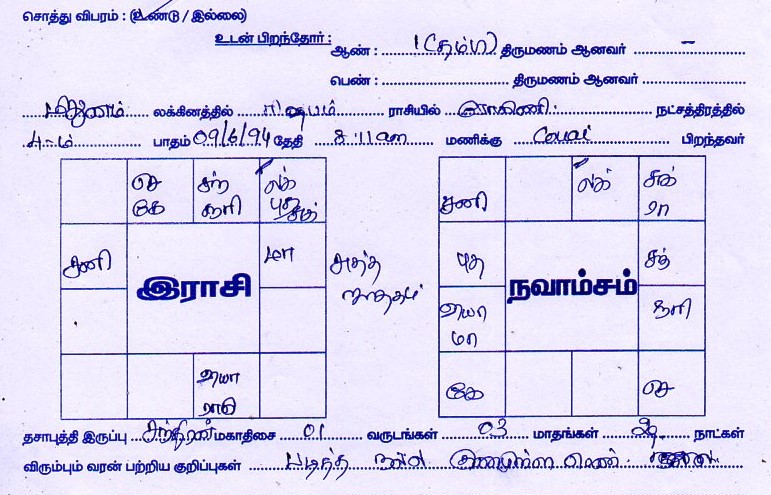 சொத்து விபரம் : (உண்டு / இல்லை)
உடன் பிறந்தோர் : ஆண் : 1 (தம்பி) திருமணம் ஆனவர் –
பெண் : திருமணம் ஆனவர்
மிதுனம் லக்கினத்தில் ரிஷபம் ராசியில் ரோகிணி நட்சத்திரத்தில்
4-ம் பாதம் 09/6/94 தேதி 8.11am மணிக்கு பிறந்தவர்
செ சந் லக் சனி லக் சுக்
கே சூரி புத சுக் ரா
சனி மா புத சந்
இராசி சுத்த ஜாதகம் நவாம்சம்
வியா மா சூரி
வியா ராகு கே செ
தசாபுத்தி இருப்பு சந்திரன் மகாதிசை 01 வருடங்கள் 03 மாதங்கள் நாட்கள்
விரும்பும் வரன் பற்றிய குறிப்புகள் படித்த நல்ல குணமுள்ள பெண்